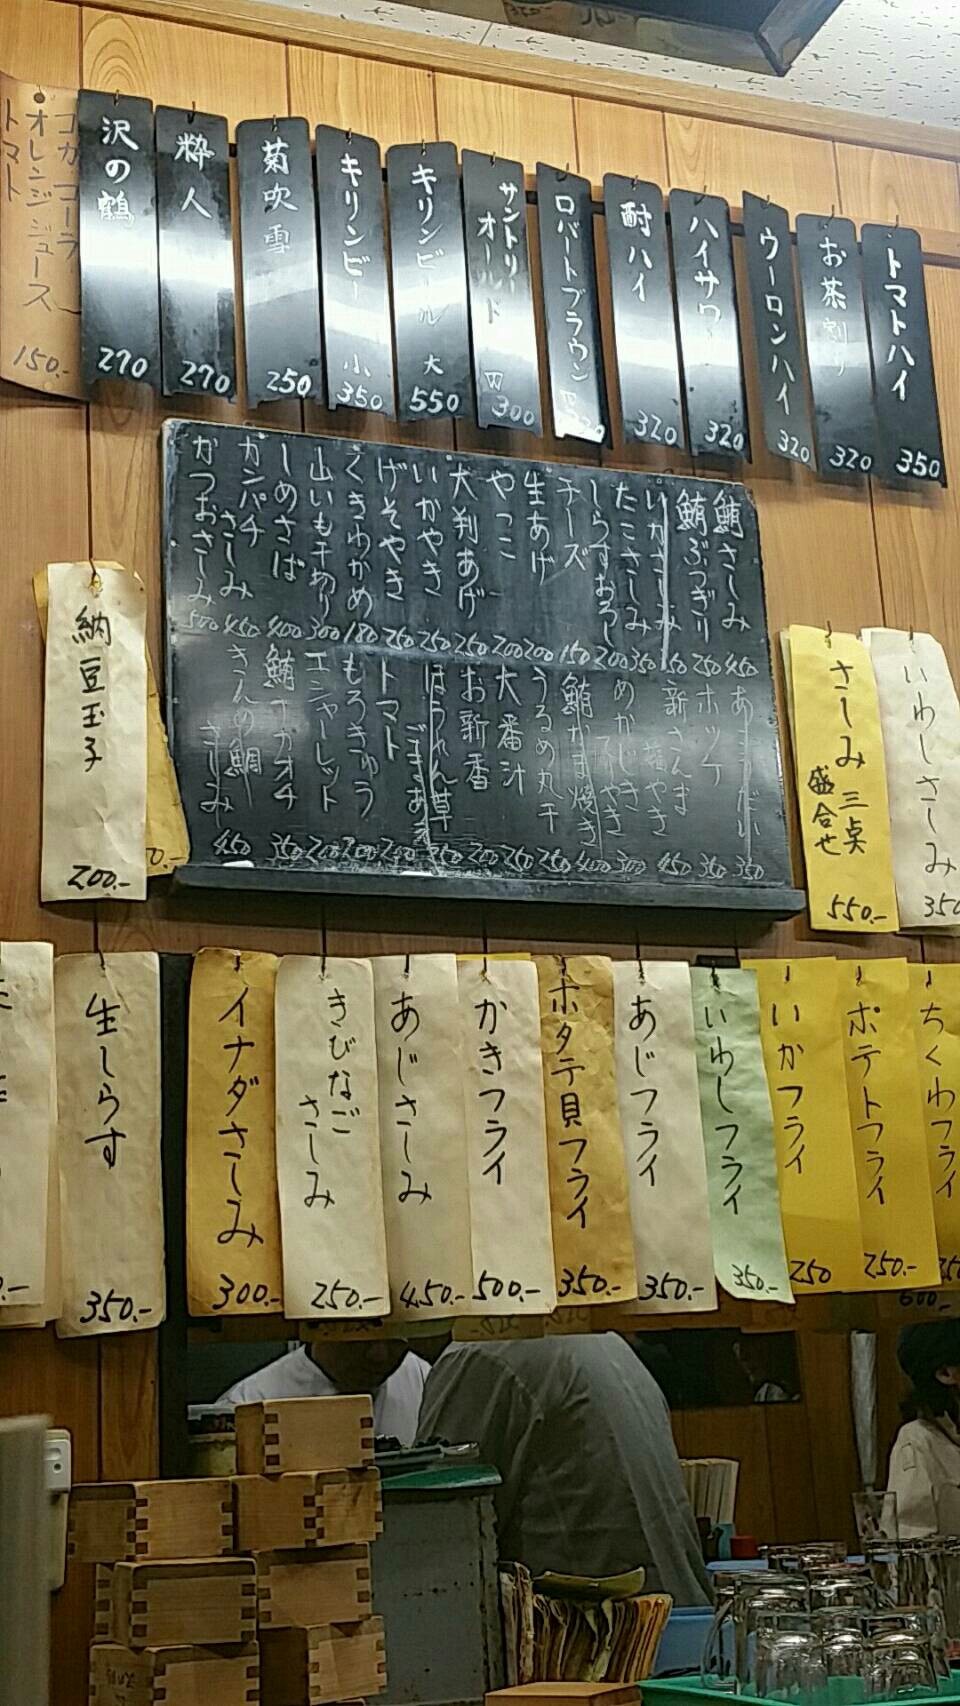 トマトハイ 350
お茶割り 320
ウーロンハイ 320
ハイサワー 320
酎ハイ 320
ロバートブラウン
サントリーオールド 300
キリンビール 大 550
キリンビール 小 350
菊吹雪 250
粋人 270
沢の鶴 270
コカコーラ
オレンジジュース
トマト
150.-
鮪さしみ 450
鮪ぶつぎり 250
いかさしみ
たこさしみ 350
しらすおろし 200
チーズ 150
生あげ 200
やっこ 200
大判あげ 250
いかやき 250
げそやき 250
くきわかめ 180
山いも千切り 300
しめさば 400
カンパチさしみ 450
かつおさしみ 500
350
ホッケ 350
新さんま塩やき 450
めかじきてりやき 300
鮪かま焼き 400
うるめ丸干 250
大番汁 250
お新香 200
ほうれん草ごまあえ
トマト 200
もろきゅう 200
エシャーレット 200
鮪ナカオチ 350
きんめ鯛さしみ 450
納豆玉子
200.-
さしみ三点
盛合せ
550.-
いわしさしみ
350
生しらす
350.-
イナダさしみ
300.-
きびなご
さしみ
250.-
あじさしみ
450.-
かきフライ
500.-
ホタテ貝フライ
350.-
あじフライ
350.-
いわしフライ
350.-
いかフライ
250
ポテトフライ
250.-
ちくわフライ
250
600.-